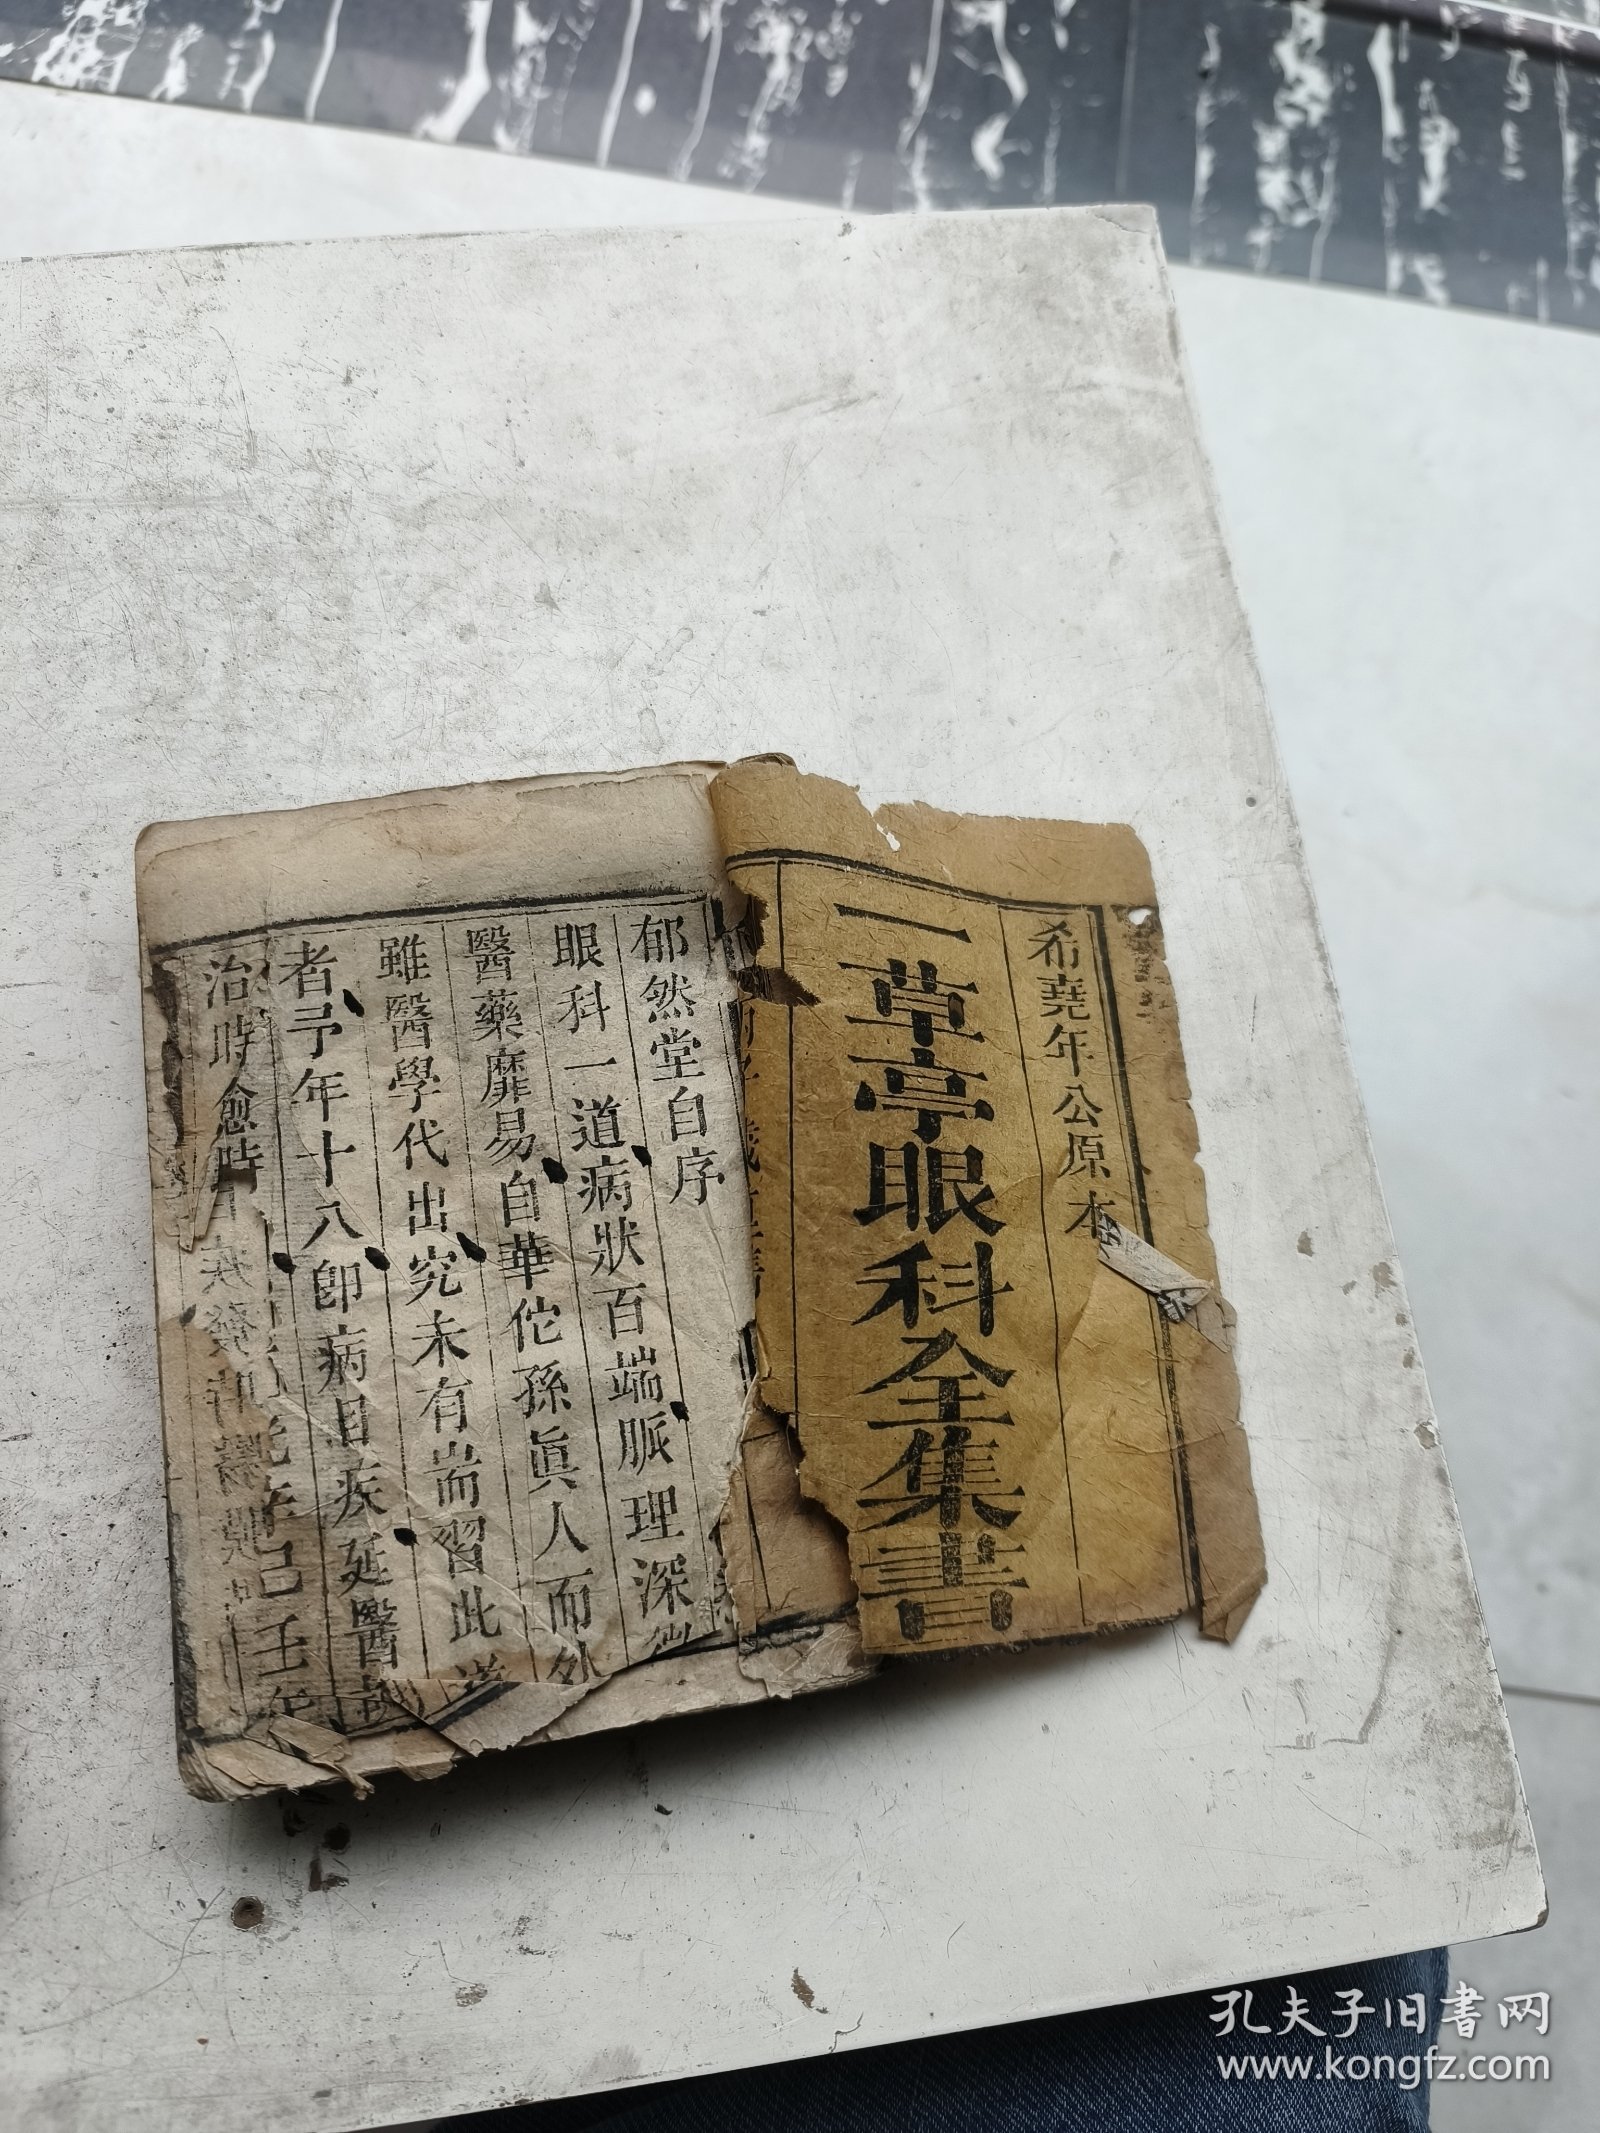 希堯年公原本
一草亭眼科全集書
郁然堂自序
眼科一道病狀百端脈理深
醫藥靡易自華佗孫眞人而外
雖醫學代出究未有耑習此道
者予年十八卽病目疾延醫
己壬年
治時愈時
孔夫子旧書网
www.kongfz.com